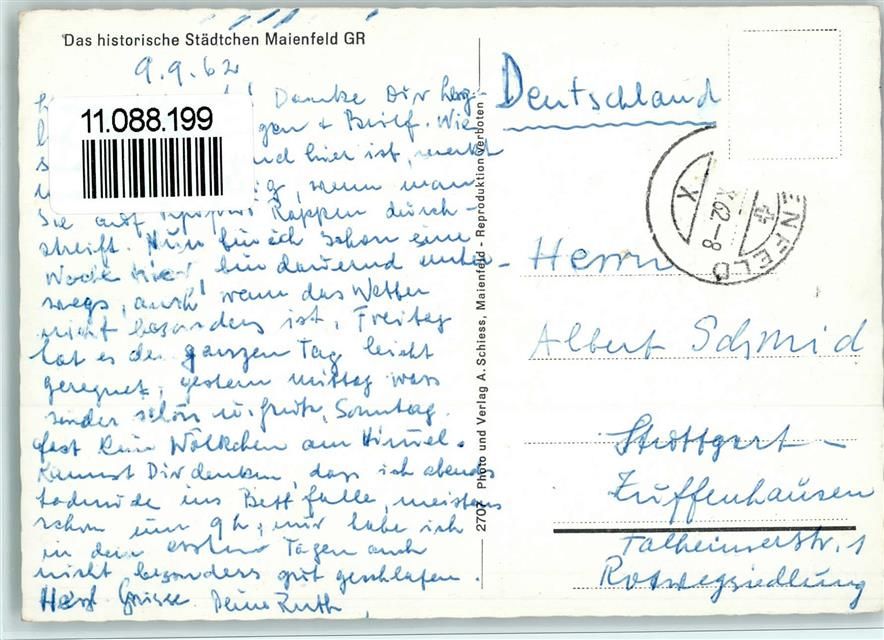 Das historische Städtchen Maienfeld GR
9.9.62
Danke Dir herz-
11.088.199
gen + Brief. Wie
und hier ist, merkt
wenn man
Sie auf Rappen durch-
streift. Nun bin ich schon eine
Woche hier, bin dauernd unter-
wegs, auch wenn das Wetter
nicht besonders ist, Freitag
hat es den ganzen Tag leicht
geregnet, gestern mittag wars
wieder schön u. Sonntag
fast kein Wölkchen am Himmel.
Kannst Dir denken, dass ich abends
todmüde ins Bett falle, meistens
schon um 9h, nur habe ich
in den ersten Tagen auch
nicht besonders gut geschlafen.
Herzl. Grüsse Deine Ruth
2707 Photo und Verlag A. Schiess, Maienfeld - Reproduktion verboten
Deutschland
ENFELD
X
X.62-8
Herrn
Albert Schmid
Stuttgart-
Zuffenhausen
Talheimerstr. 1
Rotwegsiedlung